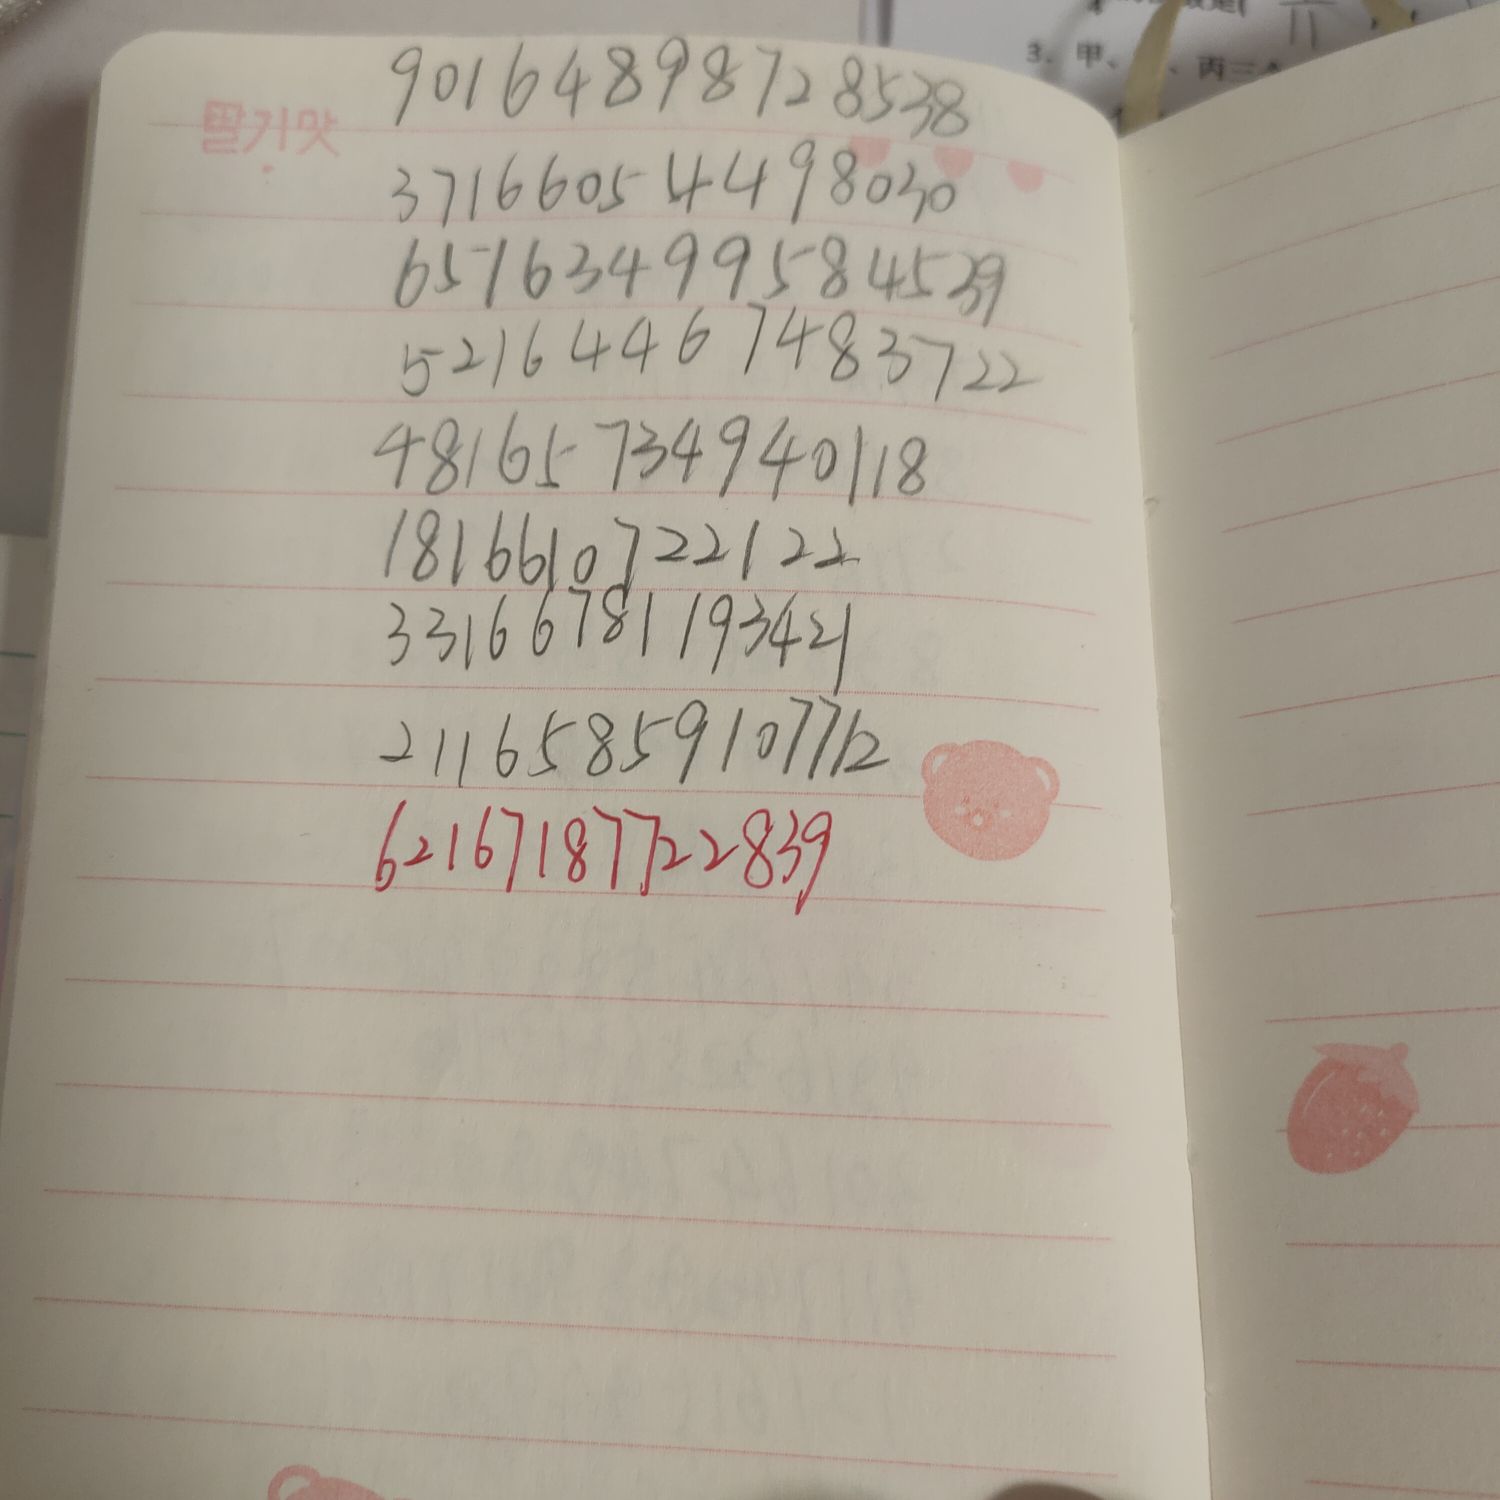 3. 甲、 、丙三
딸기맛
901648987 28538
3716605 4498030
6571634995 84539
52164467483722
481657349401 18
181661072 2122
331667811 93421
21165859107712
62167187722839